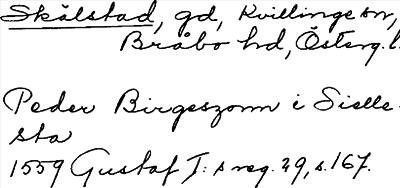 Skälstad, gd, Kvillinge sn,
Bråbo hd, Österg. l.
Peder Birgeszonn i Sielle-
sta
1559 Gustaf I:s reg. 29, s. 167.